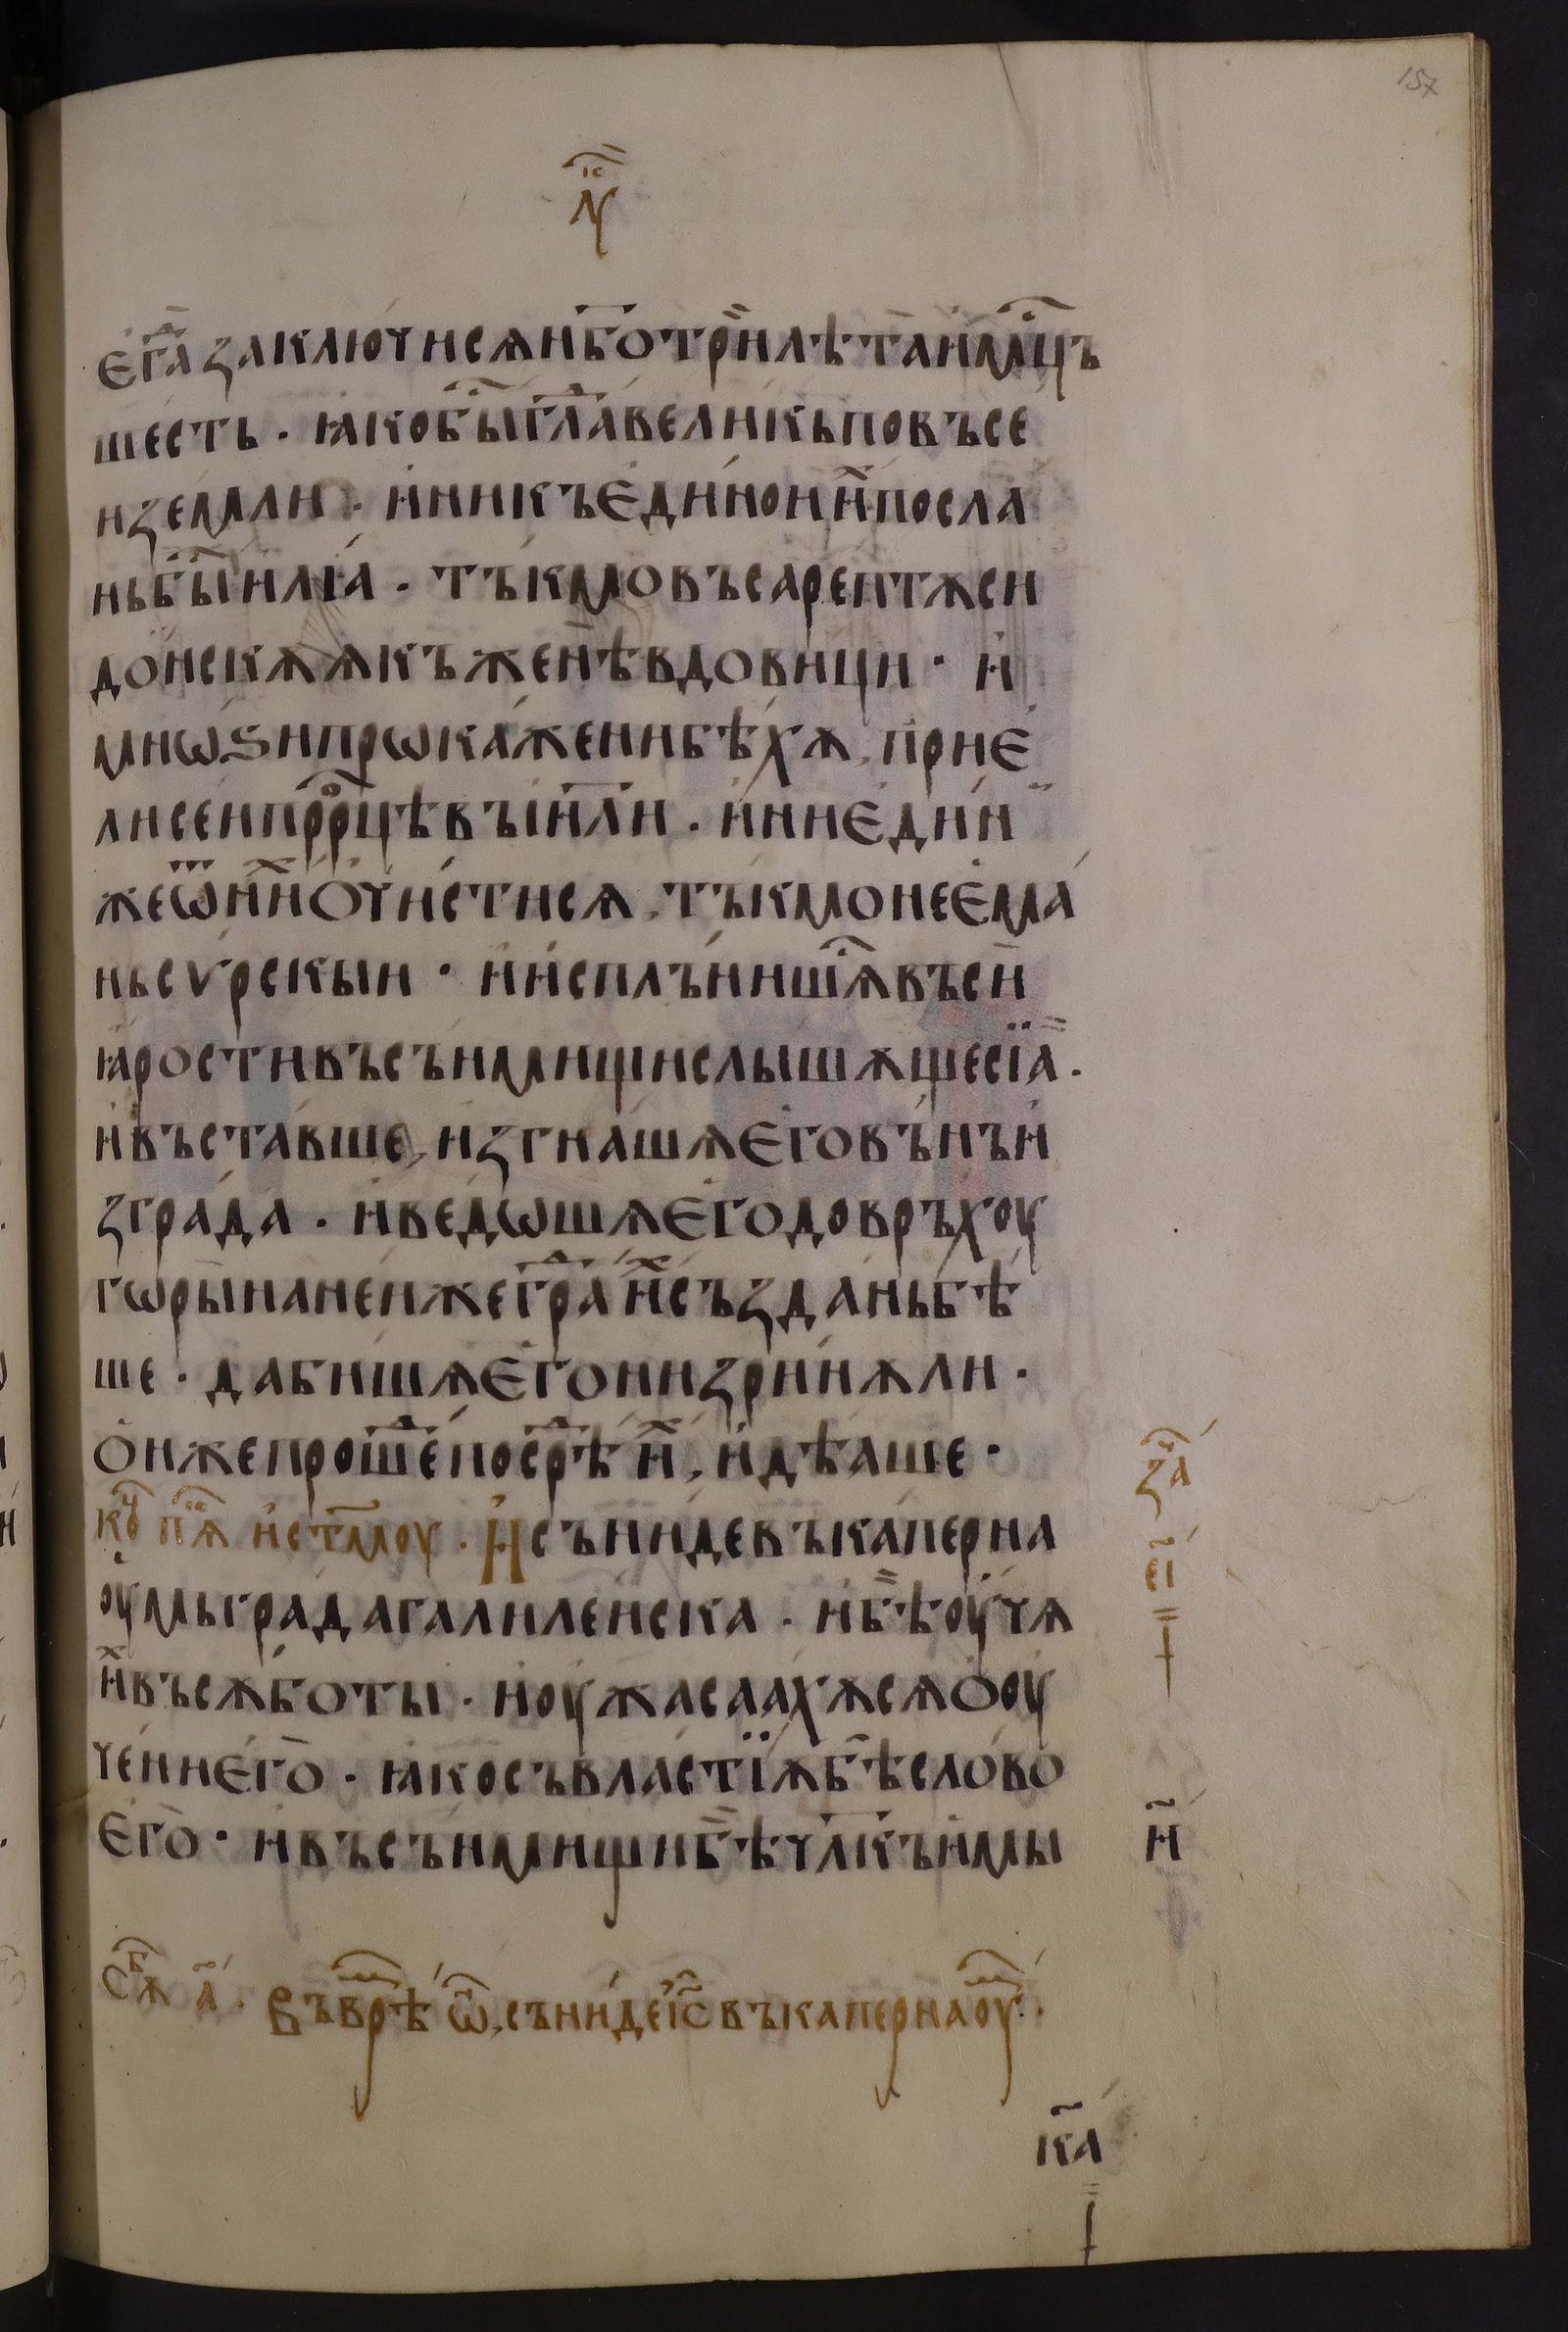 157
л҃ꙋ іс
єгⷣа заключисѧн҃ботрⷺилѣтаим҃цъ
шесть · ꙗкобыⷭ҇глаⷣвеликьповъсе
иземли · иникъєдинонⷯипосла
ньбыⷭ҇илїа · тъкмовъсарептѫси
донскѫѧкъженѣвдовици · и
мнѡѕипрѡкаженибѣхѫ, приє
лисеипрⷪ҇рцѣвъїи҃ли · ниєдин
жеѿнⷯиочистисѧ, тъкмонеєма
ньсѵрскыи · ииспльнишѧⷭ҇въси
ꙗростивъсънмищислышѫщесїа ·
ивъставше, изгнашѧєговънъи
зграда · иведѡшѧєгодовръхоу
гѡрынанеижеграⷣиⷯсъзданьбѣ
ше · дабишѧєгонизринѫли ·
онжепрошеⷣпосрⷣѣиⷯ, идѣаше ·
коⷰ҇ пѧⷦ҇ ист҃моу · Исънидевъкаперна
оумьградагалилеиска · ибѣоучѧ
иⷯвъсѫботы · иоужасаахѫсѧооу
чениєго · ꙗкосъвластїѫбѣслово
єго · ивъсънмищибѣчл҃къимы
заⷱ҇
е҃ı
и҃
сѫⷠ҇ а҃ · Въврⷨѣ ѡⷩ҇, сънидеіс҃въкапернаоуⷨ ·
к҃а